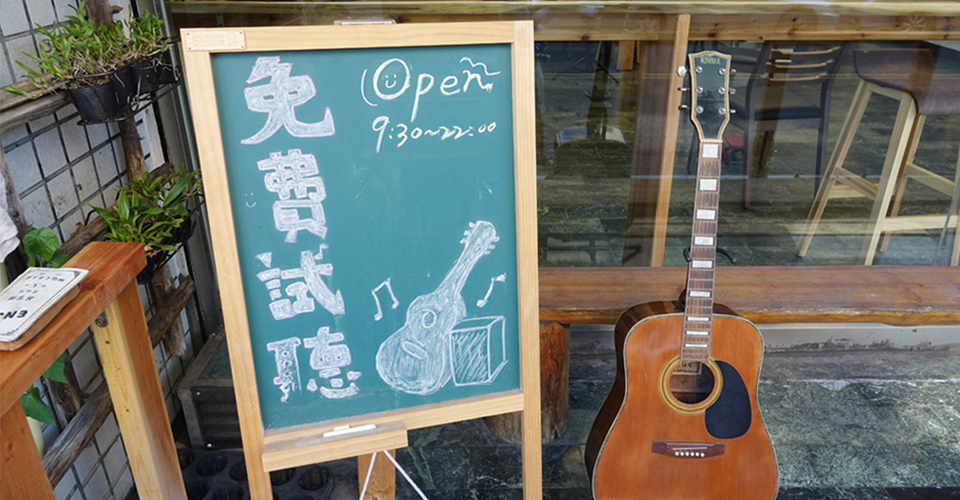 免費試聽
Open
9:30~22:00
KINWA
EN